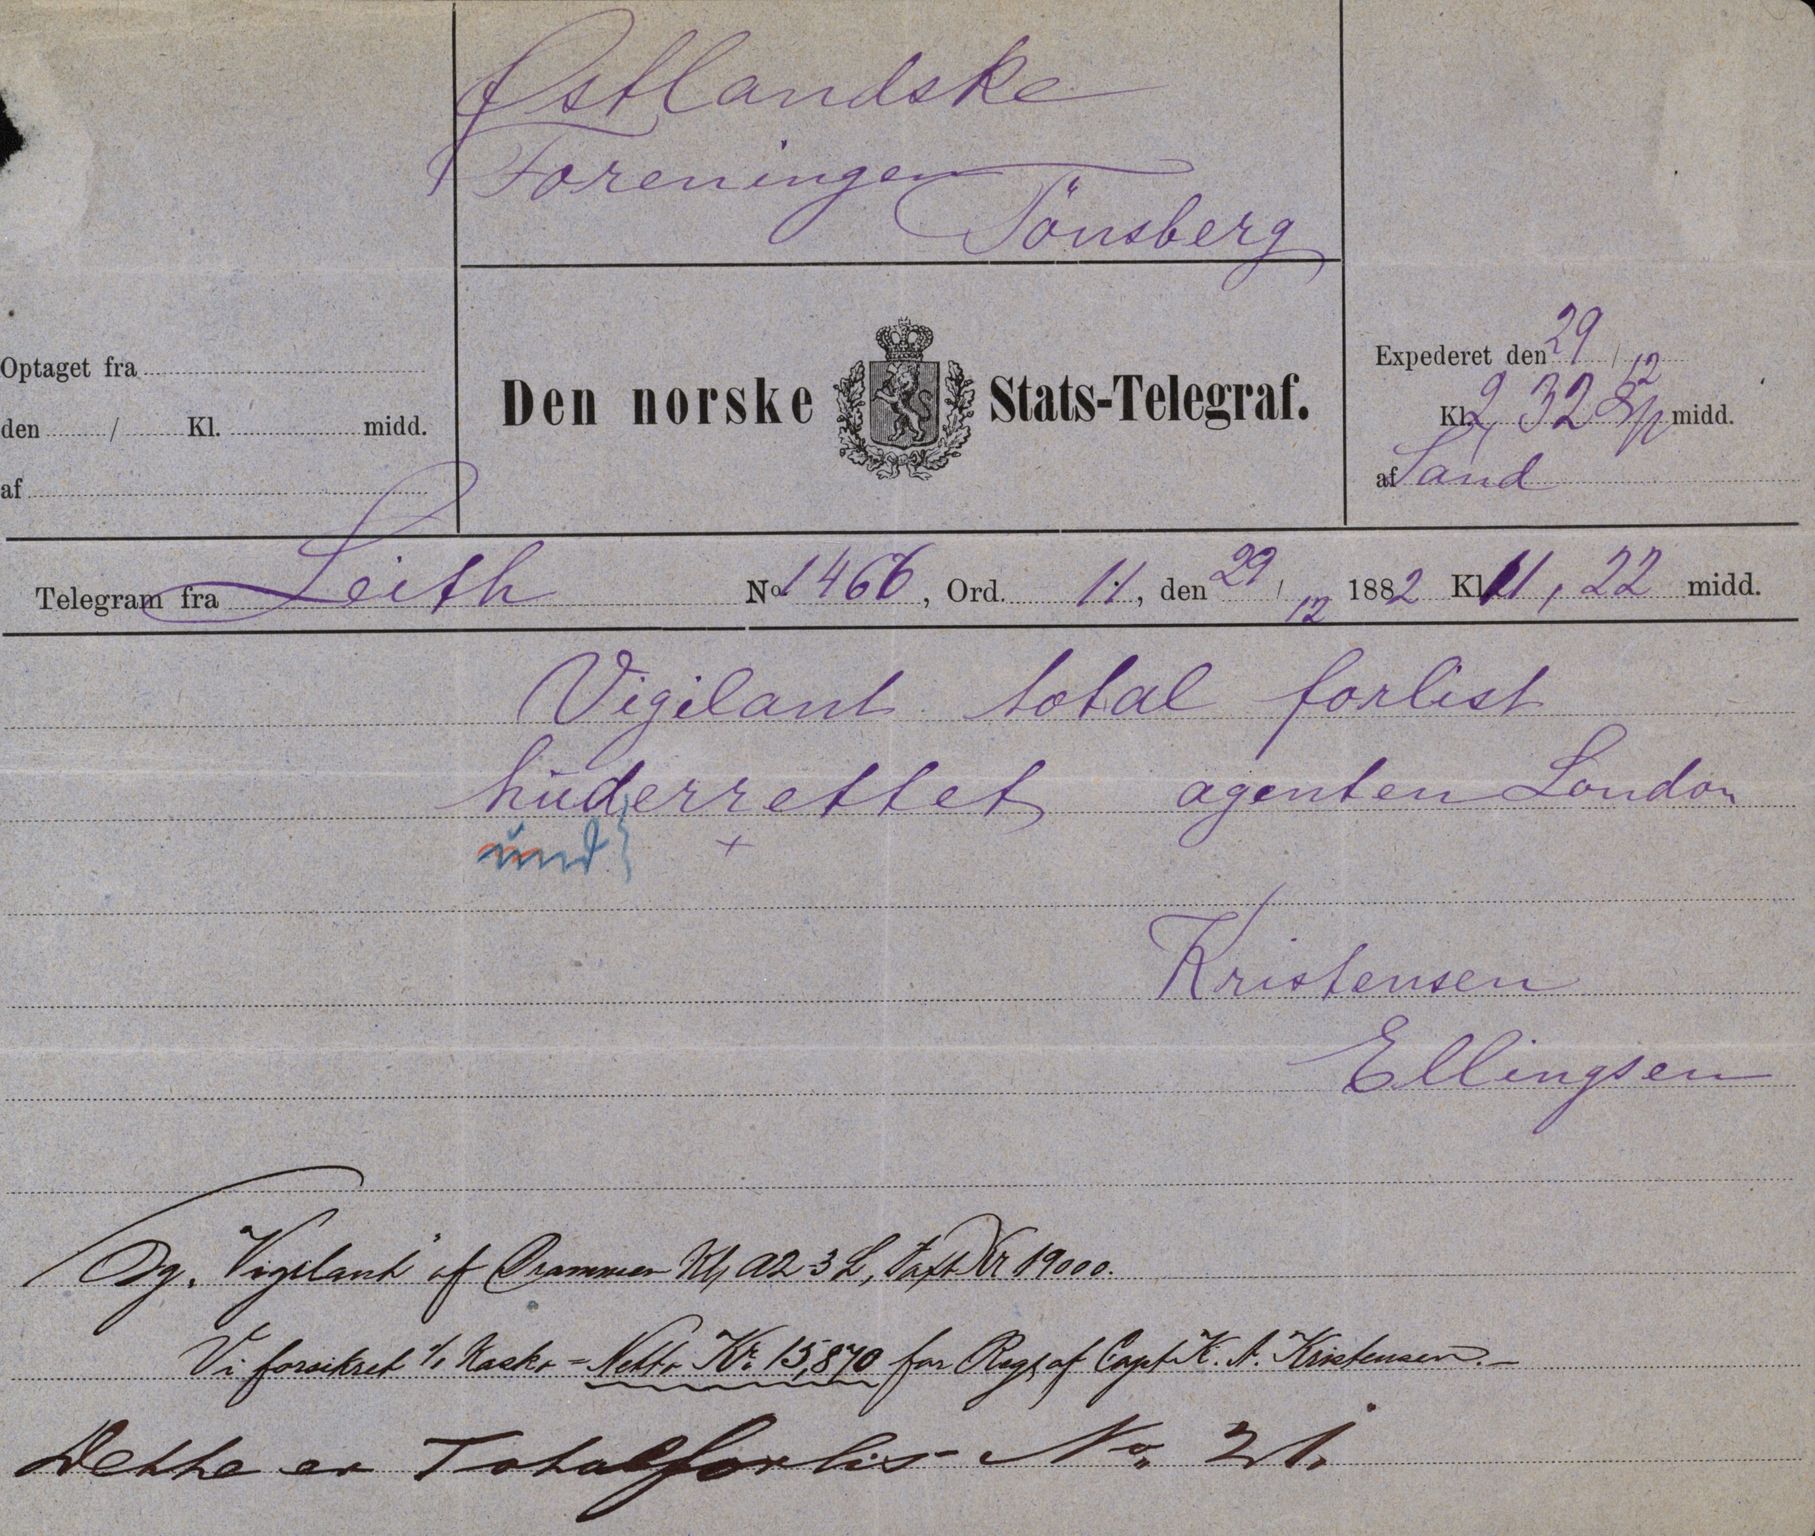 Østlandske
Foreningen
Tönsberg
Optaget fra
den / Kl. midd.
af
Den norske Stats-Telegraf.
Expederet den 29/12
Kl. 2,32 midd.
af Sand
Telegram fra Leith No 1466, Ord. 11, den 29/12 1882 Kl. 11,22 midd.
Vigilant total forlist
huderrettet agenten London
und
Kristensen
Ellingsen
"Vigilant" af Drammen Kl. A2 3 L, Taxt Kr 19000.
Vi forsikret Kasko = Netto Kr. 15,870 for Regt af Capt. K. A. Kristensen.-
Dette er Totalforlis No. 21.